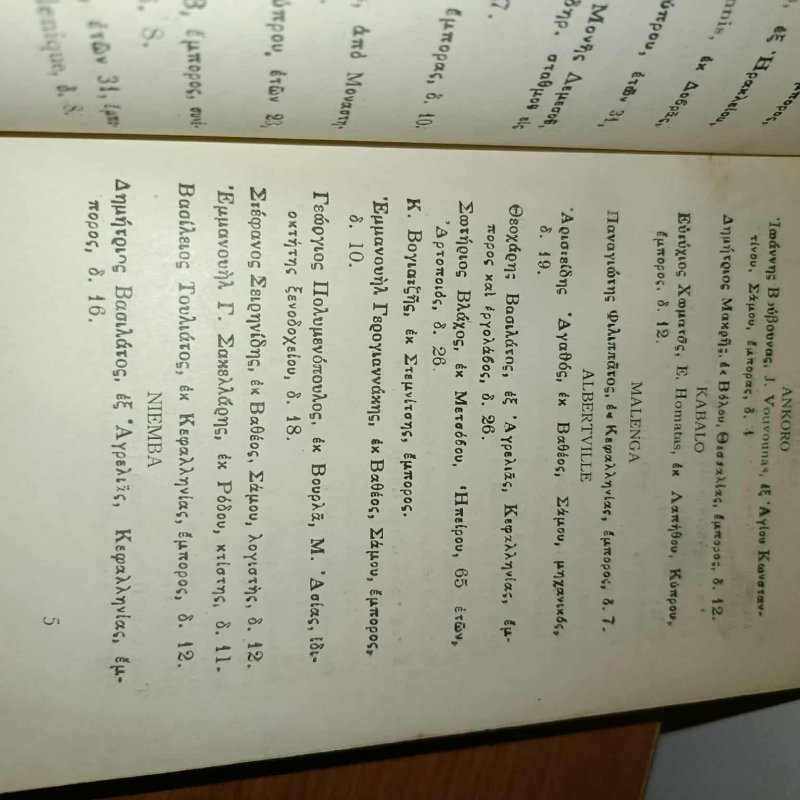 μπορος,
ἐξ Ἡρακλείου,
nnis, ἐκ Δοβρᾶς,
ύπρου, ἐτῶν 31,
Μονῆς Δεμεσοῦ,
δηρ. σταθμοῦ εἰς
7.
ἔμπορας, δ. 10.
, ἀπὸ Μοναστη-
ύπρου, ἐτῶν 23,
3, ἔμπορος, συνέ-
δ. 8.
, ἐτῶν 31, ἔμπο-
lenique, δ. 8.
ANKORO
Ἰωάννης Βούβουνας, J. Vouvounas, ἐξ Ἁγίου Κωνσταν-
τίνου, Σάμου, ἔμπορας, δ. 4
Δημήτριος Μακρῆς, ἐκ Βόλου, Θεσσαλίας, ἔμπορος, δ. 12.
KABALO
Εὐτύχιος Χωματᾶς, E. Homatas, ἐκ Λαπήθου, Κύπρου,
ἔμπορος, δ. 12.
MALENGA
Παναγιώτης Φιλιππᾶτος, ἐκ Κεφαλληνίας, ἔμπορος, δ. 7.
ALBERTVILLE
Ἀριστείδης Ἀγαθός, ἐκ Βαθέος, Σάμου, μηχανικός,
δ. 19.
Θεοχάρης Βασιλάτος, ἐξ Ἀγρελιᾶς, Κεφαλληνίας, ἔμ-
πορος καὶ ἐργολάβος, δ. 26.
Σωτήριος Βλάχος, ἐκ Μετσόβου, Ἠπείρου, 65 ἐτῶν,
Ἀρτοποιός, δ. 26.
Κ. Βογιατζῆς, ἐκ Στεμνίτσης, ἔμπορος.
Ἐμμανουὴλ Γερογιαννάκης, ἐκ Βαθέος, Σάμου, ἔμπορος,
δ. 10.
Γεώργιος Πολυμενόπουλος, ἐκ Βουρλᾶ, Μ. Ἀσίας, ἰδι-
οκτήτης ξενοδοχείου, δ. 18.
Στέφανος Σειρηνίδης, ἐκ Βαθέος, Σάμου, λογιστής, δ. 12.
Ἐμμανουὴλ Γ. Σακελλάρης, ἐκ Ρόδου, κτίστης, δ. 11.
Βασίλειος Τουλιάτος, ἐκ Κεφαλληνίας, ἔμπορος, δ. 12.
NIEMBA
Δημήτριος Βασιλάτος, ἐξ Ἀγρελιᾶς, Κεφαλληνίας, ἔμ-
πορος, δ. 16.
5